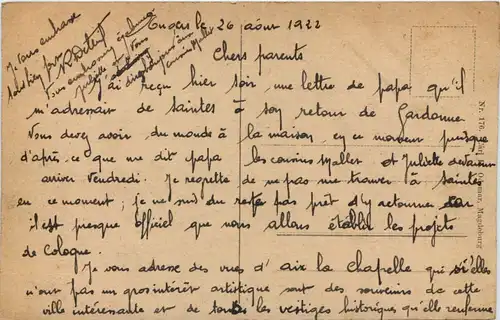 le 26 août 1922
Chers parents
J'ai reçu hier soir une lettre de papa qu'il
m'adressait de Saintes à son retour de Gardonne
Vous devez avoir du monde à la maison, en ce moment puisque
d'après ce que me dit papa les cousins Mallet et Juliette devaient
arriver Vendredi. Je regrette de ne pas me trouver à Saintes
en ce moment ; je ne suis du reste pas prêt d'y retourner car
il est presque officiel que nous allons établir les projets
de Cologne.
Je vous adresse des vues d'aix la Chapelle qui si elles
n'ont pas un gros intérêt artistique sont des souvenirs de cette
ville intéressante et de tous les vestiges historiques qu'elle renferme
J'vous embrasse
bien fort
Vous embrasserez
Juliette et
cousins Mallet
Nr. 170
Magdeburg